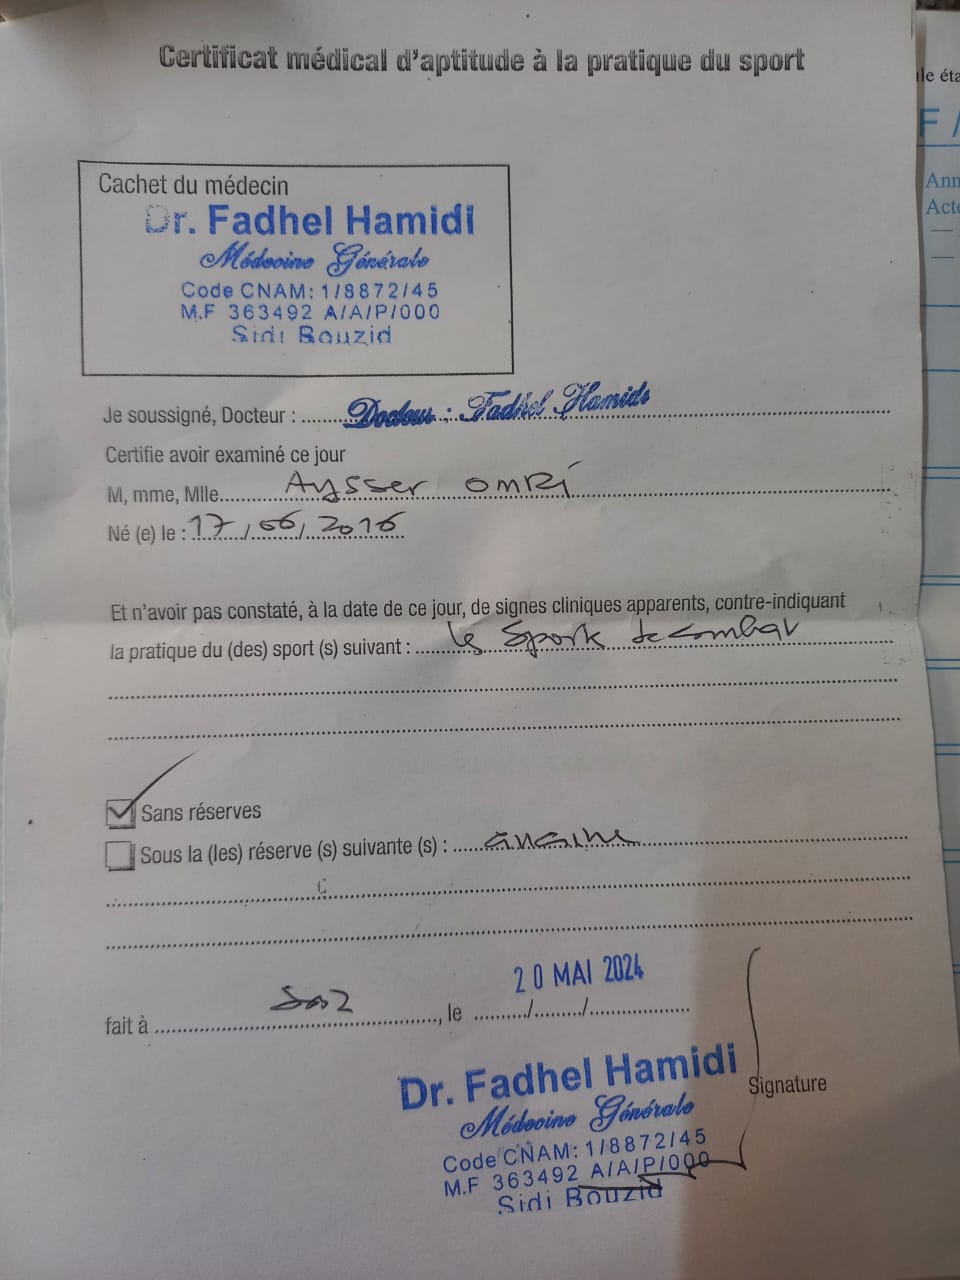 Certificat médical d'aptitude à la pratique du sport
Cachet du médecin
Dr. Fadhel Hamidi
Médecine Générale
Code CNAM: 1/8872/45
M.F 363492 A/A/P/000
Sidi Bouzid
Je soussigné, Docteur : Docteur : Fadhel Hamidi
Certifie avoir examiné ce jour
M, mme, Mlle Aysser OMRi
Né (e) le : 17/06/2016
Et n'avoir pas constaté, à la date de ce jour, de signes cliniques apparents, contre-indiquant
la pratique du (des) sport (s) suivant : le Sport de combat
Sans réserves
Sous la (les) réserve (s) suivante (s) :
fait à, le 20 MAI 2024
Dr. Fadhel Hamidi
Signature
Médecine Générale
Code CNAM: 1/8872/45
M.F 363492 A/A/P/000
Sidi Bouzid
Ann
Acte